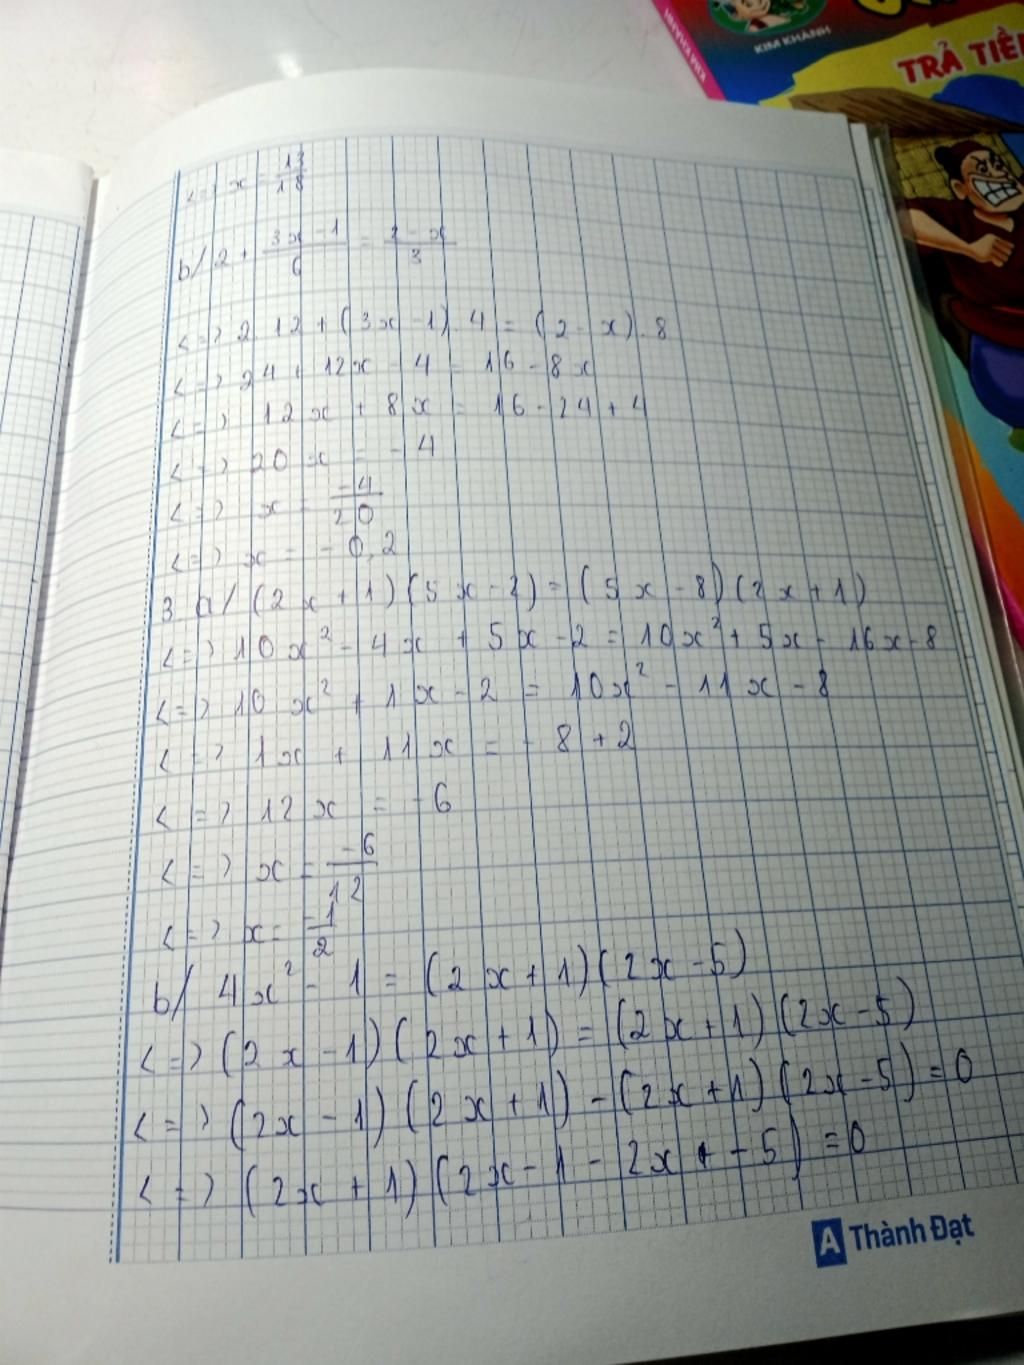 KIM KHÁNH
TRẢ TIỀ
<=> x = 13/18
b/ 2 + (3x - 1)/6 = (2 - x)/3
<=> 2 12 + (3x - 1) 4 = (2 - x) . 8
<=> 24 + 12x - 4 = 16 - 8x
<=> 12x + 8x = 16 - 24 + 4
<=> 20x = -4
<=> x = -4/20
<=> x = -0,2
3 a/ (2x + 1)(5x - 2) = (5x - 8)(2x + 1)
<=> 10x² - 4x + 5x - 2 = 10x² + 5x - 16x - 8
<=> 10x² + 1x - 2 = 10x² - 11x - 8
<=> 1x + 11x = -8 + 2
<=> 12x = -6
<=> x = -6/12
<=> x = -1/2
b/ 4x² - 1 = (2x + 1)(2x - 5)
<=> (2x - 1)(2x + 1) = (2x + 1)(2x - 5)
<=> (2x - 1)(2x + 1) - (2x + 1)(2x - 5) = 0
<=> (2x + 1)(2x - 1 - 2x + - 5) = 0
A Thành Đạt